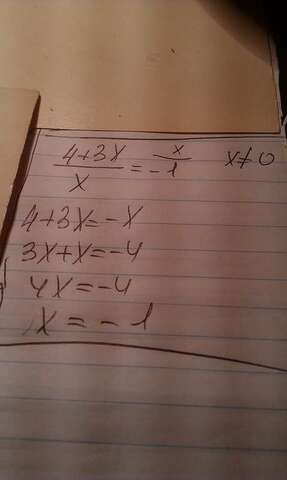 (4+3x)/x = -1 x x≠0
4+3x=-x
3x+x=-4
4x=-4
x=-1